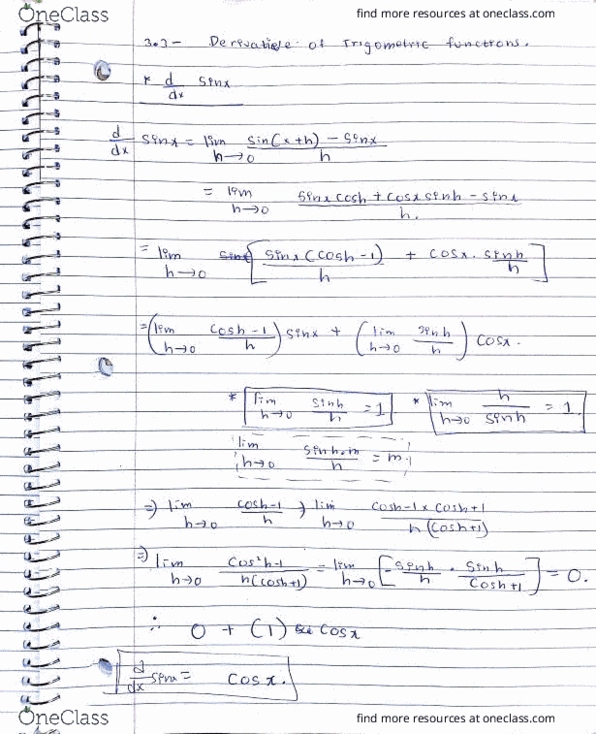 OneClass find more resources at oneclass.com
3.3 - Derivative of Trigometric functions.
* d/dx sinx
d/dx sinx = lim h→0 sin(x+h) - sinx / h
= lim h→0 sinx cosh + cosx sinh - sinx / h.
= lim h→0 [ sinx (cosh-1) / h + cosx . sinh / h ]
= ( lim h→0 cosh-1 / h ) sinx + ( lim h→0 sinh / h ) cosx.
* lim h→0 sinh / h = 1 * lim h→0 h / sinh = 1
lim h→0 sinh.m / h = m.
⇒ lim h→0 cosh-1 / h ⇒ lim h→0 cosh-1 x cosh+1 / h (cosh+1)
⇒ lim h→0 cos²h-1 / h(cosh+1) = lim h→0 [ -sinh / h . sinh / cosh+1 ] = 0.
∴ 0 + (1) cosx
d/dx sinx = cosx.
OneClass find more resources at oneclass.com